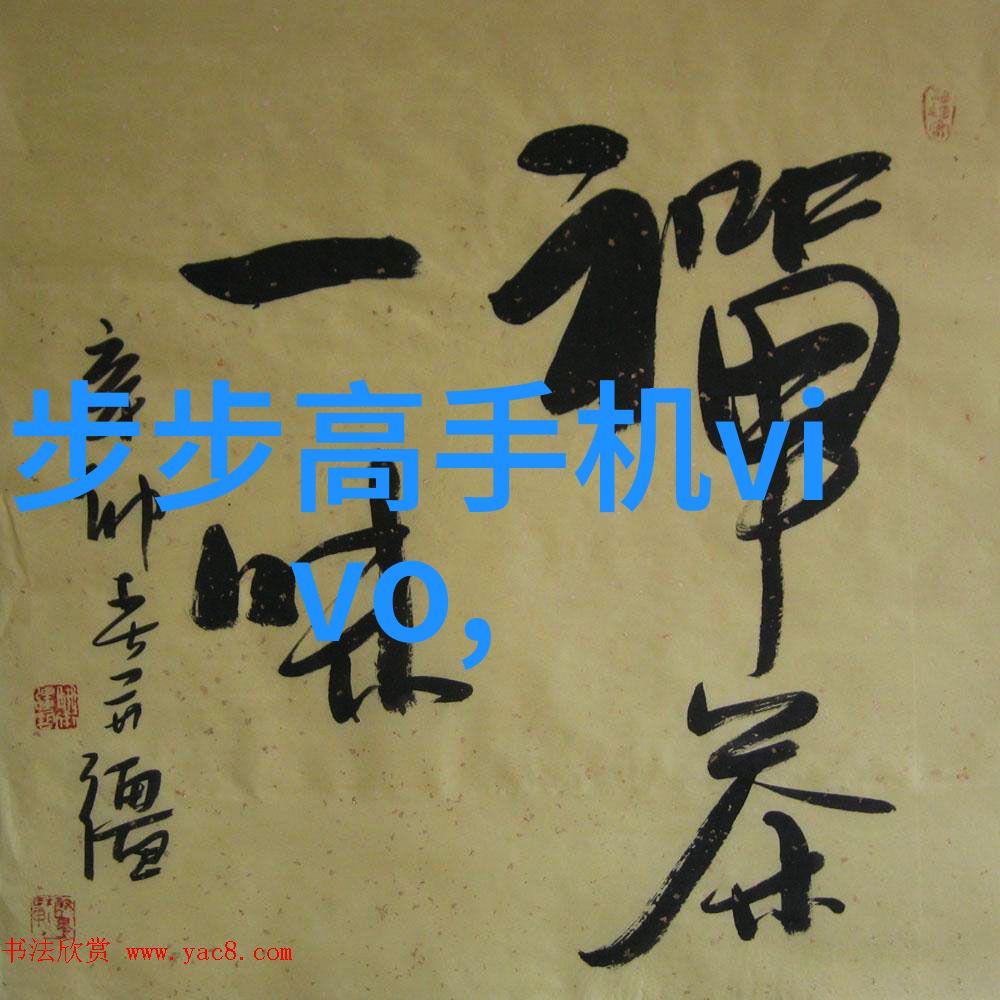 禪茶
一味
步步高手机vi
vo,
书法欣赏 www.yac8.com